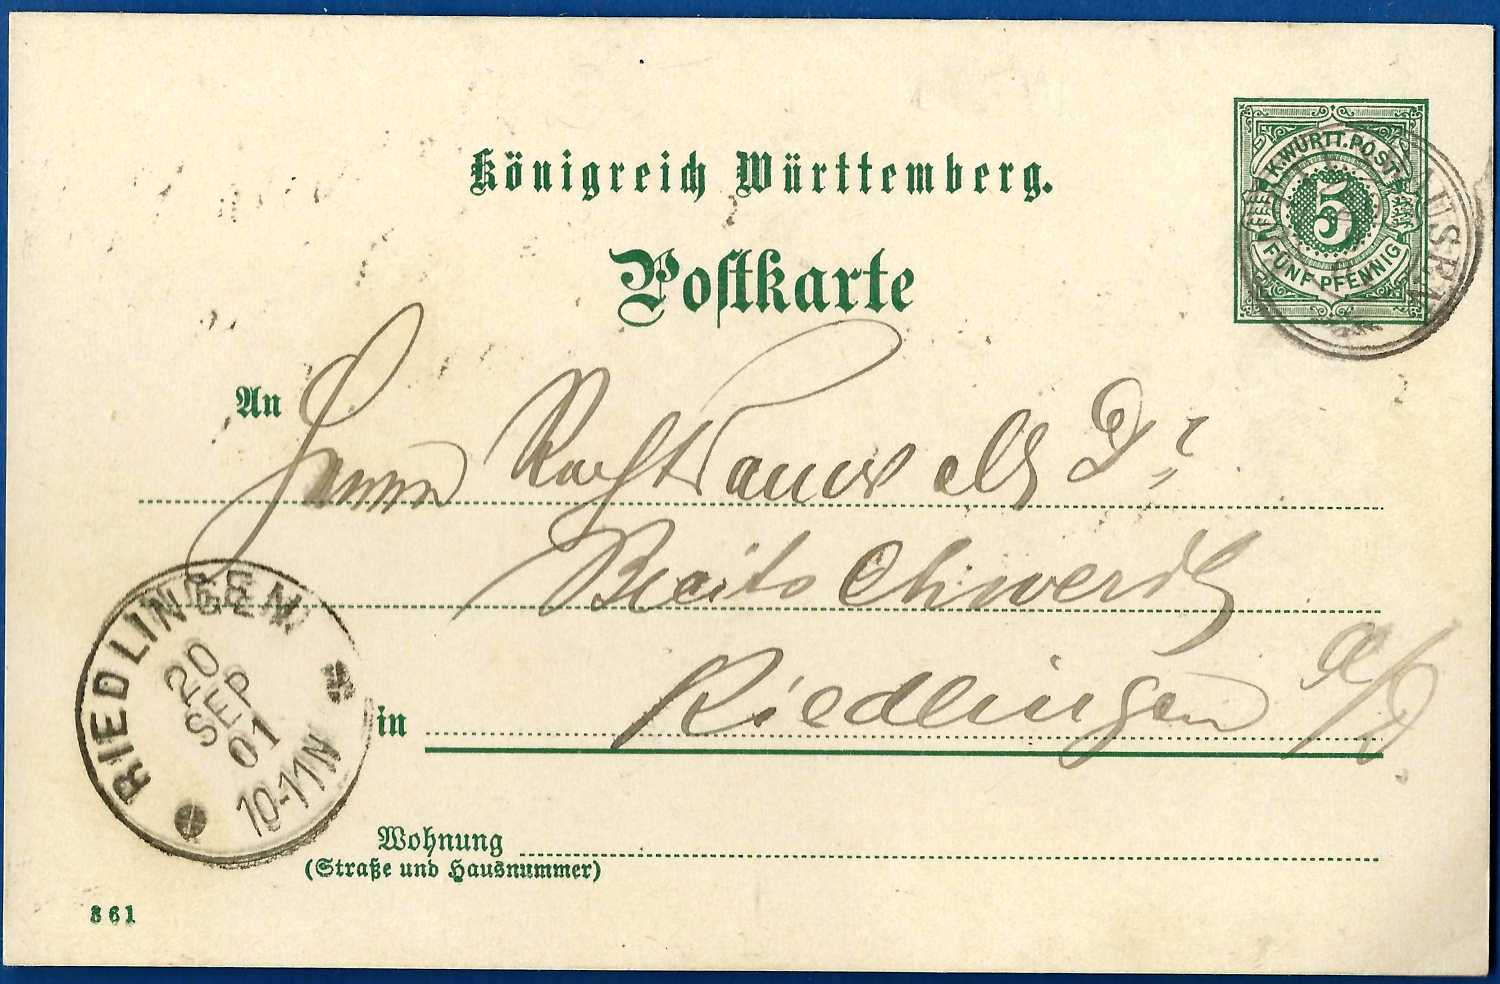 Königreich Württemberg.
Postkarte
K.WÜRTT.POST
5
FÜNF PFENNIG
An
Herrn Rechtsanwalt Dr
in Riedlingen a/D.
RIEDLINGEN
20
SEP
01
10-11N
Wohnung
(Straße und Hausnummer)
861